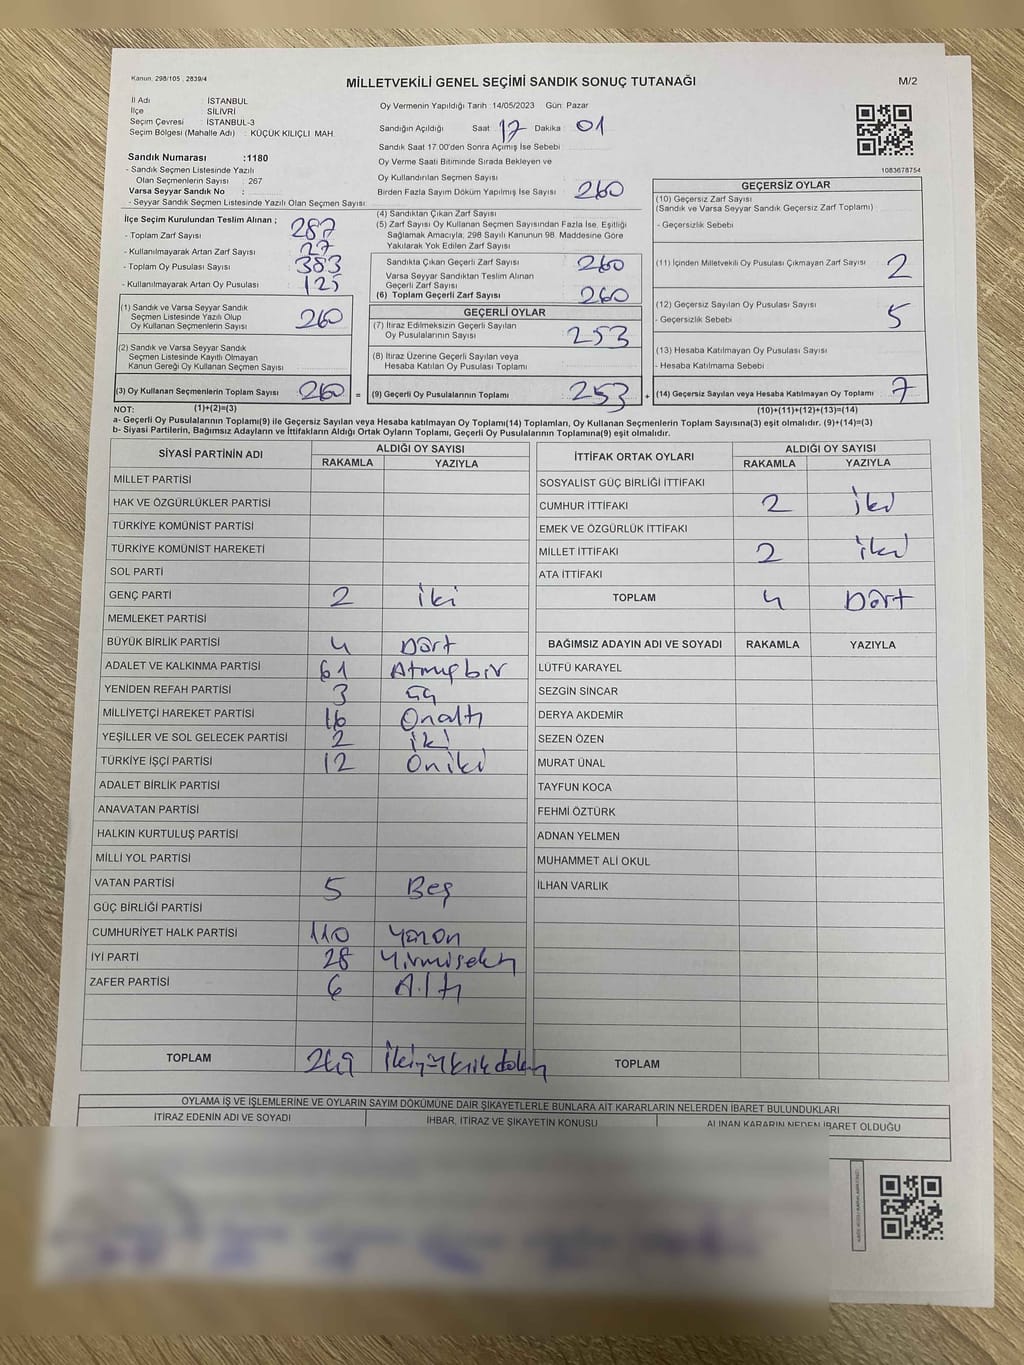 Kanun: 298/105 , 2839/4
MİLLETVEKİLİ GENEL SEÇİMİ SANDIK SONUÇ TUTANAĞI
M/2
İl Adı : İSTANBUL
İlçe : SİLİVRİ
Seçim Çevresi : İSTANBUL-3
Seçim Bölgesi (Mahalle Adı) : KÜÇÜK KILIÇLI MAH.
Sandık Numarası :1180
- Sandık Seçmen Listesinde Yazılı
Olan Seçmenlerin Sayısı : 267
Varsa Seyyar Sandık No :
- Seyyar Sandık Seçmen Listesinde Yazılı Olan Seçmen Sayısı :
Oy Vermenin Yapıldığı Tarih :14/05/2023 Gün: Pazar
Sandığın Açıldığı Saat 17 Dakika 01
Sandık Saat 17:00'den Sonra Açılmış İse Sebebi
Oy Verme Saati Bitiminde Sırada Bekleyen ve
Oy Kullandırılan Seçmen Sayısı
Birden Fazla Sayım Döküm Yapılmış İse Sayısı
1083678754
İlçe Seçim Kurulundan Teslim Alınan ;
- Toplam Zarf Sayısı 287
- Kullanılmayarak Artan Zarf Sayısı 27
- Toplam Oy Pusulası Sayısı 383
- Kullanılmayarak Artan Oy Pusulası 125
(1) Sandık ve Varsa Seyyar Sandık
Seçmen Listesinde Yazılı Olup
Oy Kullanan Seçmenlerin Sayısı 260
(2) Sandık ve Varsa Seyyar Sandık
Seçmen Listesinde Kayıtlı Olmayan
Kanun Gereği Oy Kullanan Seçmen Sayısı
(3) Oy Kullanan Seçmenlerin Toplam Sayısı 260 =
(4) Sandıktan Çıkan Zarf Sayısı 260
(5) Zarf Sayısı Oy Kullanan Seçmen Sayısından Fazla İse, Eşitliği
Sağlamak Amacıyla, 298 Sayılı Kanunun 98. Maddesine Göre
Yakılarak Yok Edilen Zarf Sayısı
Sandıkta Çıkan Geçerli Zarf Sayısı 260
Varsa Seyyar Sandıktan Teslim Alınan
Geçerli Zarf Sayısı
(6) Toplam Geçerli Zarf Sayısı 260
GEÇERLİ OYLAR
(7) İtiraz Edilmeksizin Geçerli Sayılan
Oy Pusulalarının Sayısı 253
(8) İtiraz Üzerine Geçerli Sayılan veya
Hesaba Katılan Oy Pusulası Toplamı
(9) Geçerli Oy Pusulalarının Toplamı 253 +
GEÇERSİZ OYLAR
(10) Geçersiz Zarf Sayısı
(Sandık ve Varsa Seyyar Sandık Geçersiz Zarf Toplamı)
- Geçersizlik Sebebi
(11) İçinden Milletvekili Oy Pusulası Çıkmayan Zarf Sayısı 2
(12) Geçersiz Sayılan Oy Pusulası Sayısı 5
- Geçersizlik Sebebi
(13) Hesaba Katılmayan Oy Pusulası Sayısı
- Hesaba Katılmama Sebebi
(14) Geçersiz Sayılan veya Hesaba Katılmayan Oy Toplamı 7
NOT: (1)+(2)=(3)
(10)+(11)+(12)+(13)=(14)
a- Geçerli Oy Pusulalarının Toplamı(9) ile Geçersiz Sayılan veya Hesaba katılmayan Oy Toplamı(14) Toplamları, Oy Kullanan Seçmenlerin Toplam Sayısına(3) eşit olmalıdır. (9)+(14)=(3)
b- Siyasi Partilerin, Bağımsız Adayların ve İttifakların Aldığı Ortak Oyların Toplamı, Geçerli Oy Pusulalarının Toplamına(9) eşit olmalıdır.
SİYASİ PARTİNİN ADI
ALDIĞI OY SAYISI
RAKAMLA YAZIYLA
MİLLET PARTİSİ
HAK VE ÖZGÜRLÜKLER PARTİSİ
TÜRKİYE KOMÜNİST PARTİSİ
TÜRKİYE KOMÜNİST HAREKETİ
SOL PARTİ
GENÇ PARTİ 2 iki
MEMLEKET PARTİSİ
BÜYÜK BİRLİK PARTİSİ 4 Dört
ADALET VE KALKINMA PARTİSİ 61 Atmışbir
YENİDEN REFAH PARTİSİ 3 üç
MİLLİYETÇİ HAREKET PARTİSİ 16 Onaltı
YEŞİLLER VE SOL GELECEK PARTİSİ 2 iki
TÜRKİYE İŞÇİ PARTİSİ 12 Oniki
ADALET BİRLİK PARTİSİ
ANAVATAN PARTİSİ
HALKIN KURTULUŞ PARTİSİ
MİLLİ YOL PARTİSİ
VATAN PARTİSİ 5 Beş
GÜÇ BİRLİĞİ PARTİSİ
CUMHURİYET HALK PARTİSİ 110 Yüzon
İYİ PARTİ 28 Yirmisekiz
ZAFER PARTİSİ 6 Altı
TOPLAM 249 ikiyüzkırkdokuz
İTTİFAK ORTAK OYLARI
ALDIĞI OY SAYISI
RAKAMLA YAZIYLA
SOSYALİST GÜÇ BİRLİĞİ İTTİFAKI
CUMHUR İTTİFAKI 2 iki
EMEK VE ÖZGÜRLÜK İTTİFAKI
MİLLET İTTİFAKI 2 iki
ATA İTTİFAKI
TOPLAM 4 Dört
BAĞIMSIZ ADAYIN ADI VE SOYADI RAKAMLA YAZIYLA
LÜTFÜ KARAYEL
SEZGİN SİNCAR
DERYA AKDEMİR
SEZEN ÖZEN
MURAT ÜNAL
TAYFUN KOCA
FEHMİ ÖZTÜRK
ADNAN YELMEN
MUHAMMET ALİ OKUL
İLHAN VARLIK
TOPLAM
OYLAMA İŞ VE İŞLEMLERİNE VE OYLARIN SAYIM DÖKÜMÜNE DAİR ŞİKAYETLERLE BUNLARA AİT KARARLARIN NELERDEN İBARET BULUNDUKLARI
İTİRAZ EDENİN ADI VE SOYADI
İHBAR, İTİRAZ VE ŞİKAYETİN KONUSU
ALINAN KARARIN NEDEN İBARET OLDUĞU